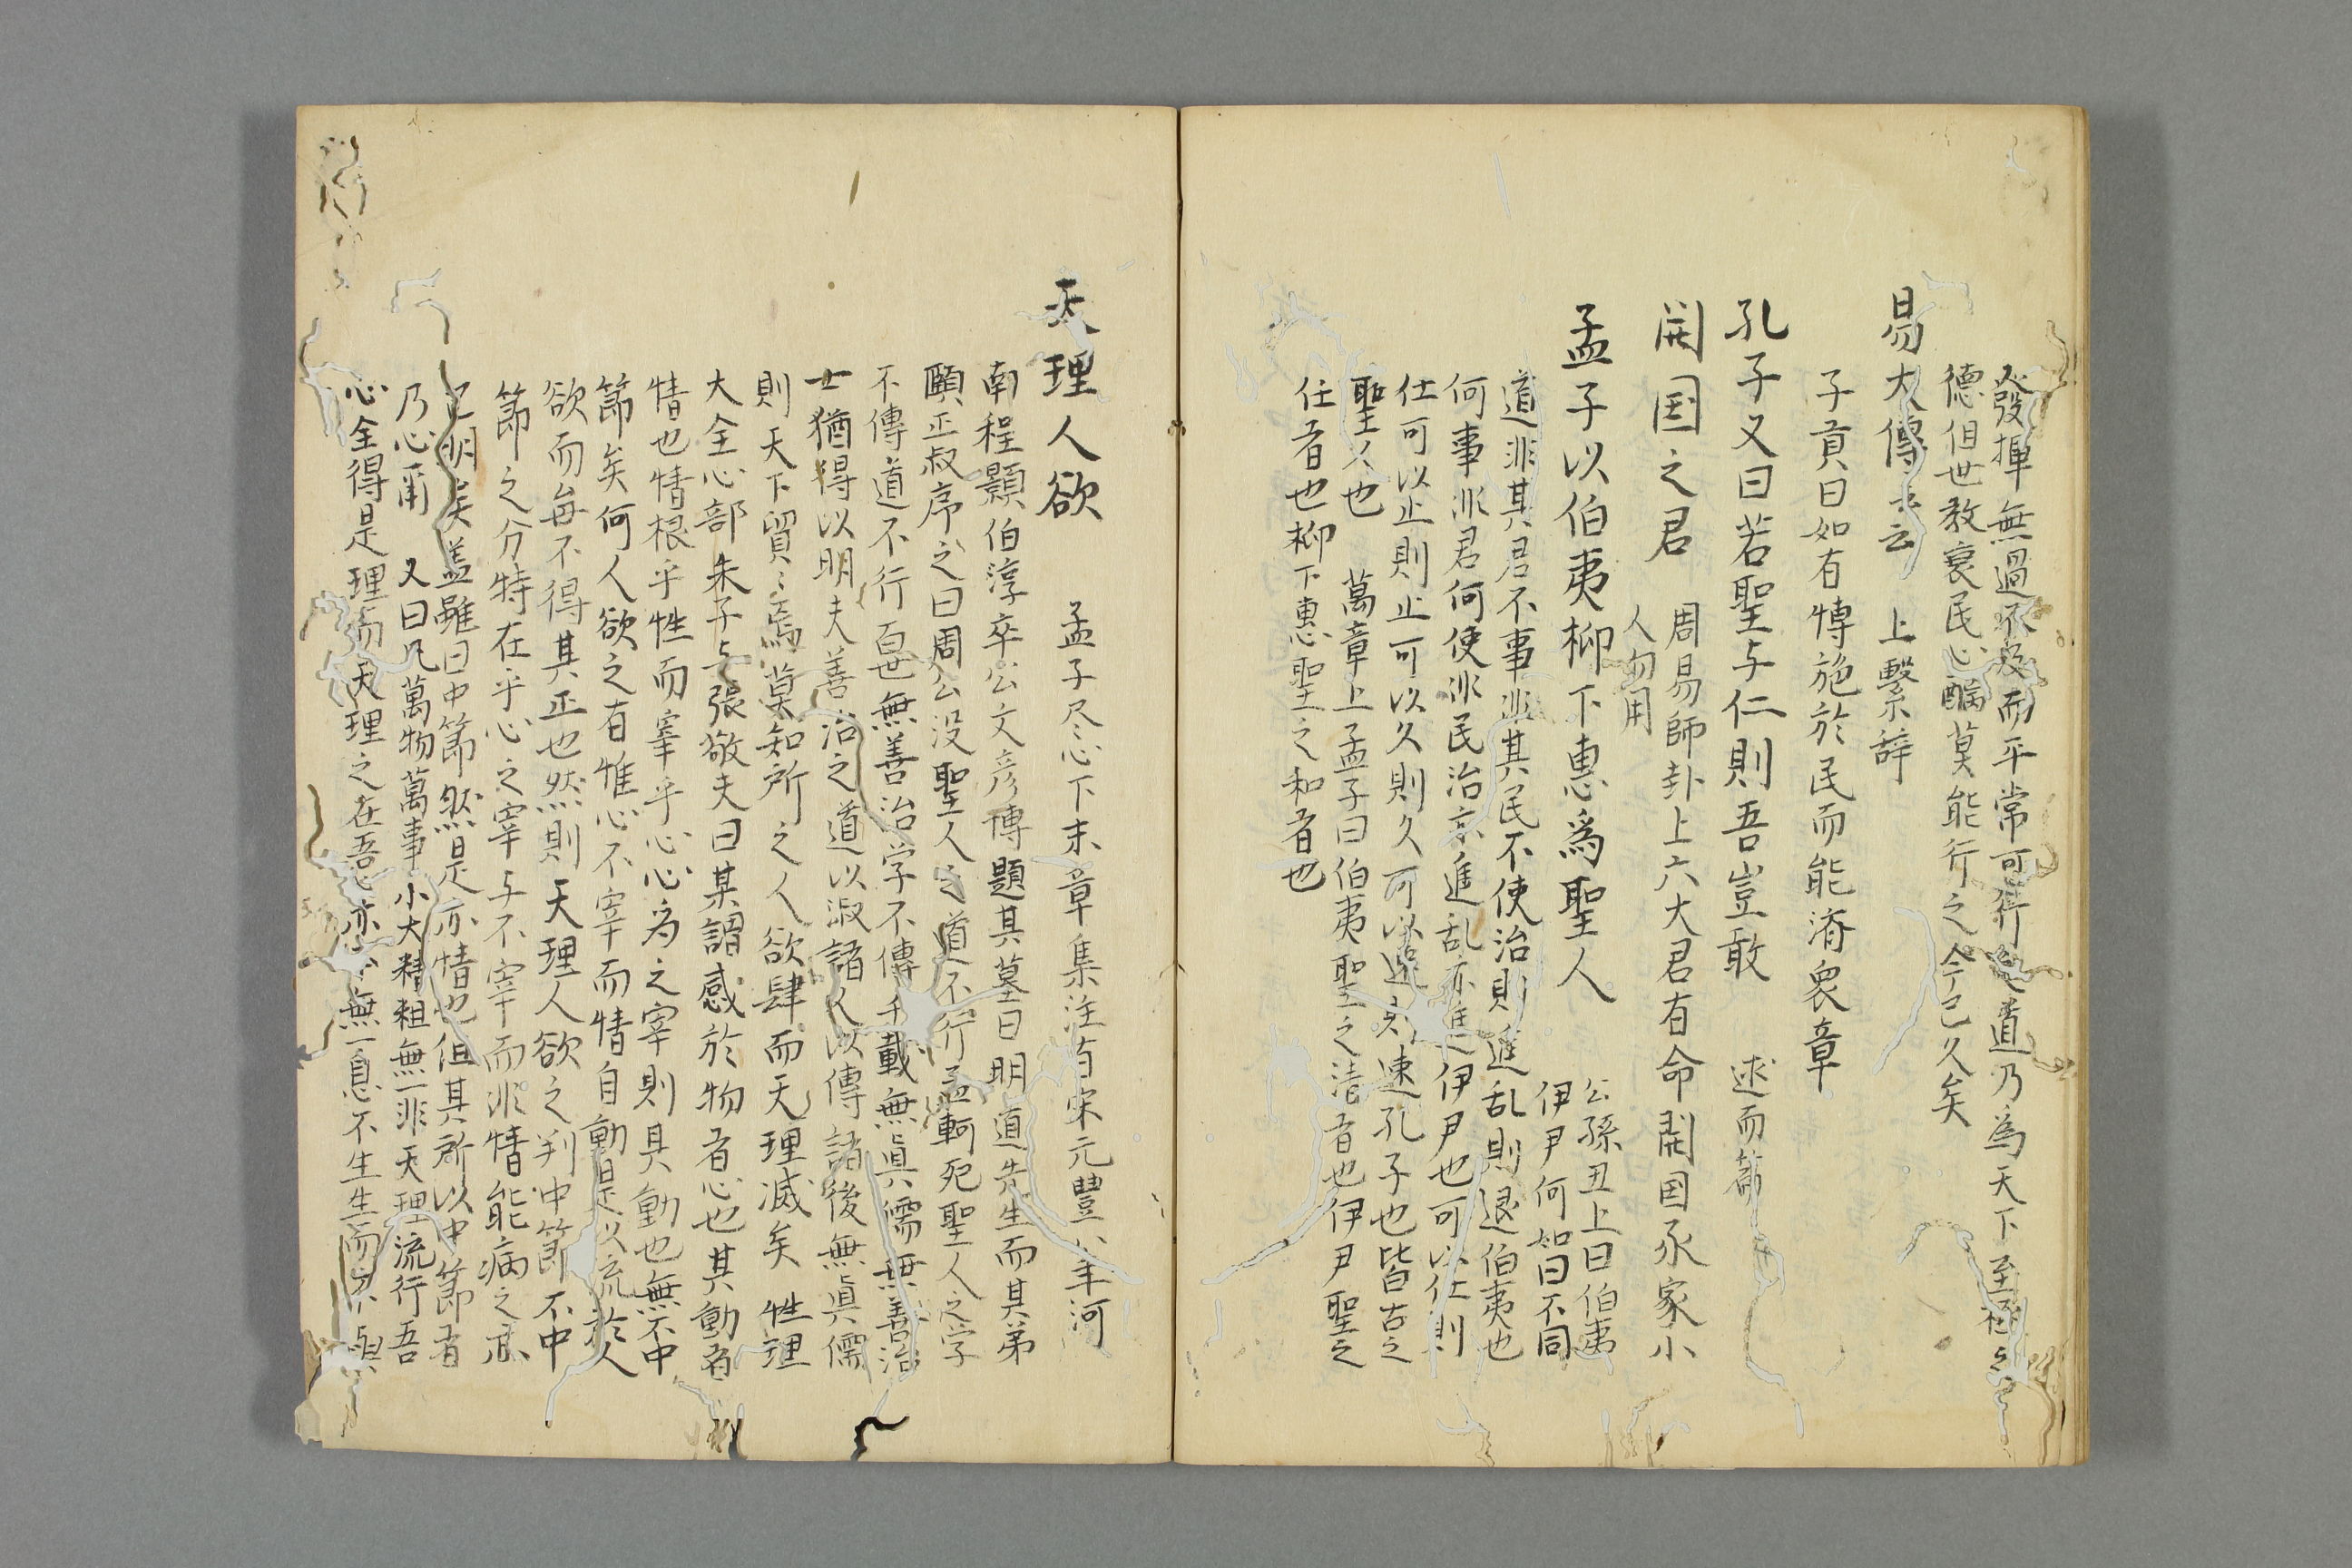 發揮無過不及而平常可行之道乃為天下至極之
德但世教衰民心醨莫能行之今已久矣
易大傳云　上繫辞
子貢曰如有博施於民而能済衆章
孔子又曰若聖与仁則吾豈敢　述而篇
開国之君　周易師卦上六大君有命開国承家小
人勿用
孟子以伯夷柳下惠為聖人　公孫丑上曰伯夷
伊尹何如曰不同
道非其君不事非其民不使治則進乱則退伯夷也
何事非君何使非民治亦進乱亦進伊尹也可以仕則
仕可以止則止可以久則久可以速則速孔子也皆古之
聖人也　萬章上孟子曰伯夷聖之清者也伊尹聖之
任者也柳下惠聖之和者也
天理人欲　孟子尽心下末章集注有宋元豐八年河
南程顥伯淳卒公文彦博題其墓曰明道先生而其弟
頤正叔序之曰周公没聖人之道不行孟軻死聖人之学
不傳道不行百世無善治学不傳千載無眞儒無善治
士猶得以明夫善治之道以淑諸人以傳諸後無眞儒
則天下貿々焉莫知所之人欲肆而天理滅矣　性理
大全心部　朱子与張敬夫曰某謂感於物者心也其動者
情也情根乎性而宰乎心心为之宰則其動也無不中
節矣何人欲之有惟心不宰而情自動是以流於人
欲而每不得其正也然則天理人欲之判中節不中
節之分特在乎心之宰与不宰而非情能病之亦
已明矣盖雖曰中節然是亦情也但其所以中節者
乃心甭　又曰凡萬物萬事小大精粗無一非天理流行吾
心全得是理而天理之在吾心亦無一息不生生而不與